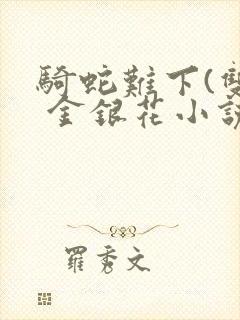 騎蛇難下(雙
金銀花小說
羅秀文